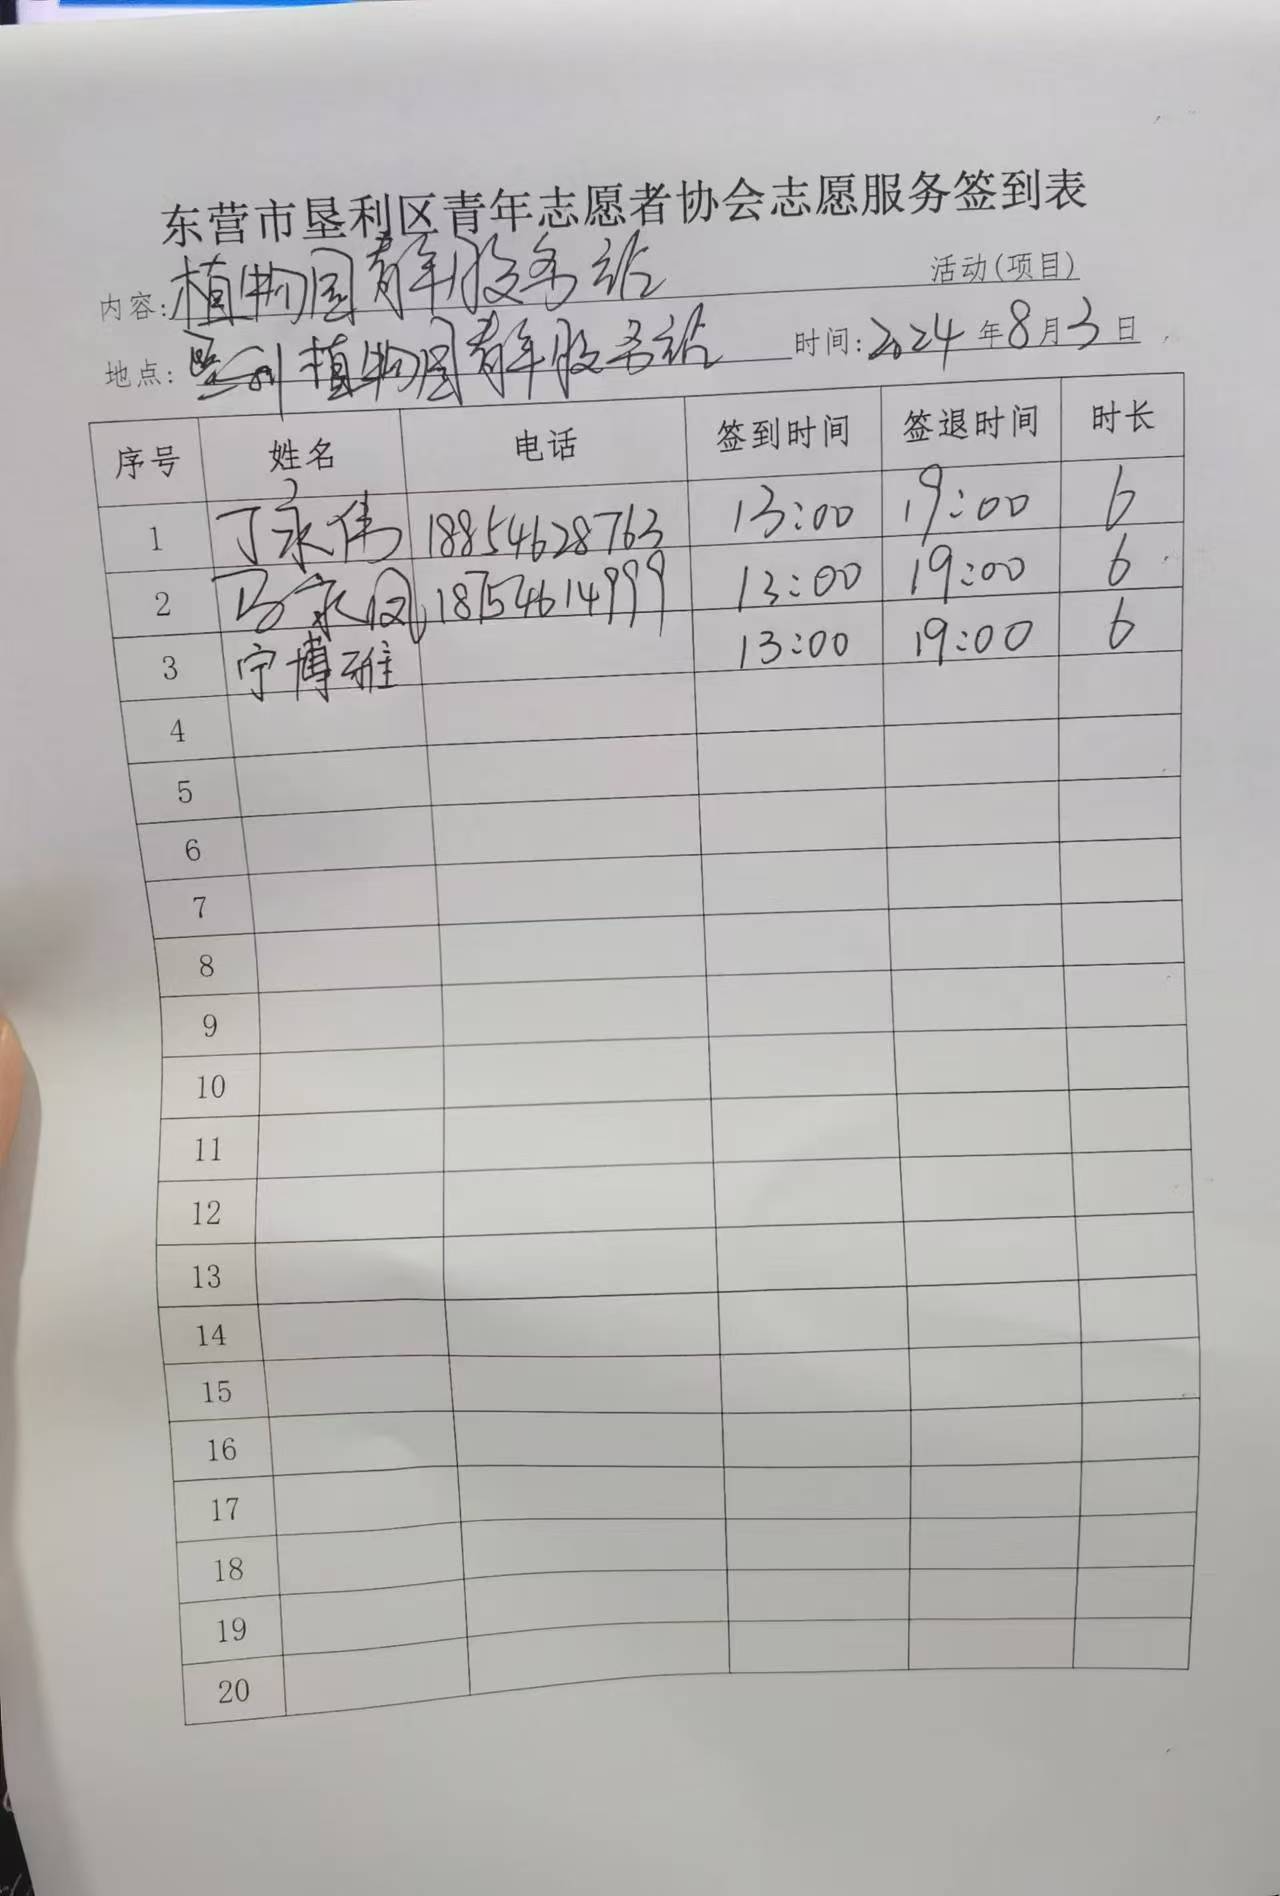 东营市垦利区青年志愿者协会志愿服务签到表
内容: 植物园青年服务站 活动(项目)
地点: 垦利植物园青年服务站 时间: 2024 年 8 月 3 日
序号 姓名 电话 签到时间 签退时间 时长
1 丁永伟 18854628763 13:00 19:00 6
2 马永凤 18754614999 13:00 19:00 6
3 宁博雅 13:00 19:00 6
4
5
6
7
8
9
10
11
12
13
14
15
16
17
18
19
20